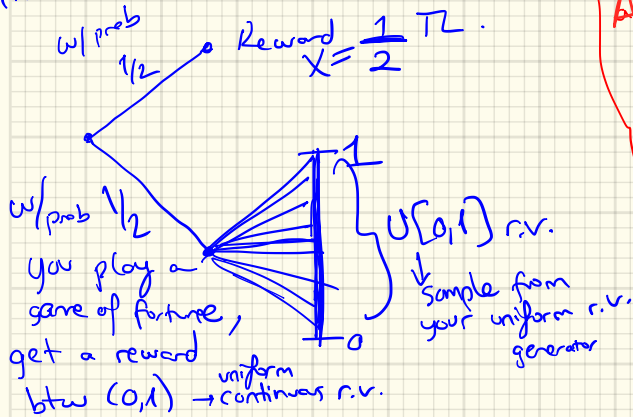 w/prob 1/2
Reward X = 1/2 TL.
w/prob 1/2
you play a
game of fortune,
get a reward
btw (0,1) → uniform continuous r.v.
1
0
U[0,1] r.v.
↓
sample from
your uniform r.v.
generator